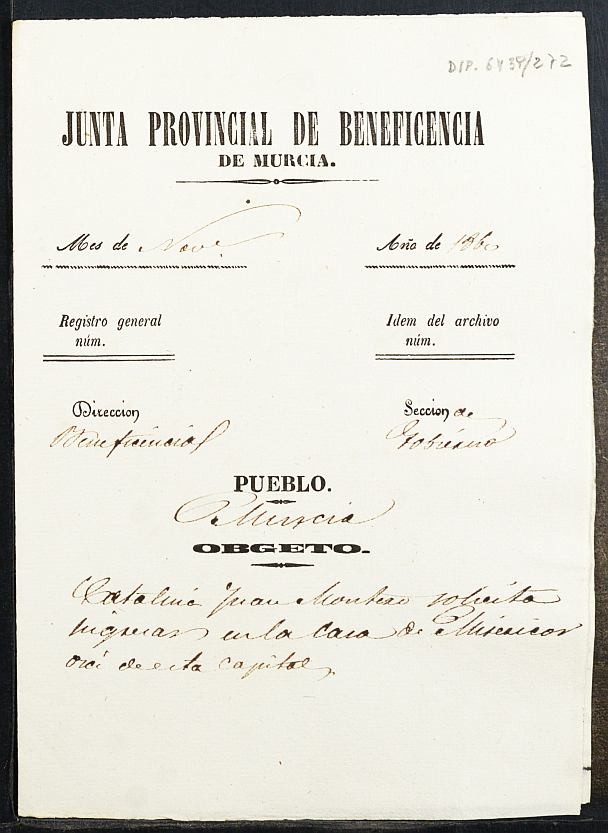 DIP. 6439/272
JUNTA PROVINCIAL DE BENEFICENCIA
DE MURCIA.
Mes de Nove.
Año de 1860
Registro general
núm.
Idem del archivo
núm.
Direccion
Beneficencia
Seccion de
Gobierno
PUEBLO.
Murcia
OBGETO.
Catalina Juan Montero solicita
ingresar en la Casa de Misericor
dia de esta capital